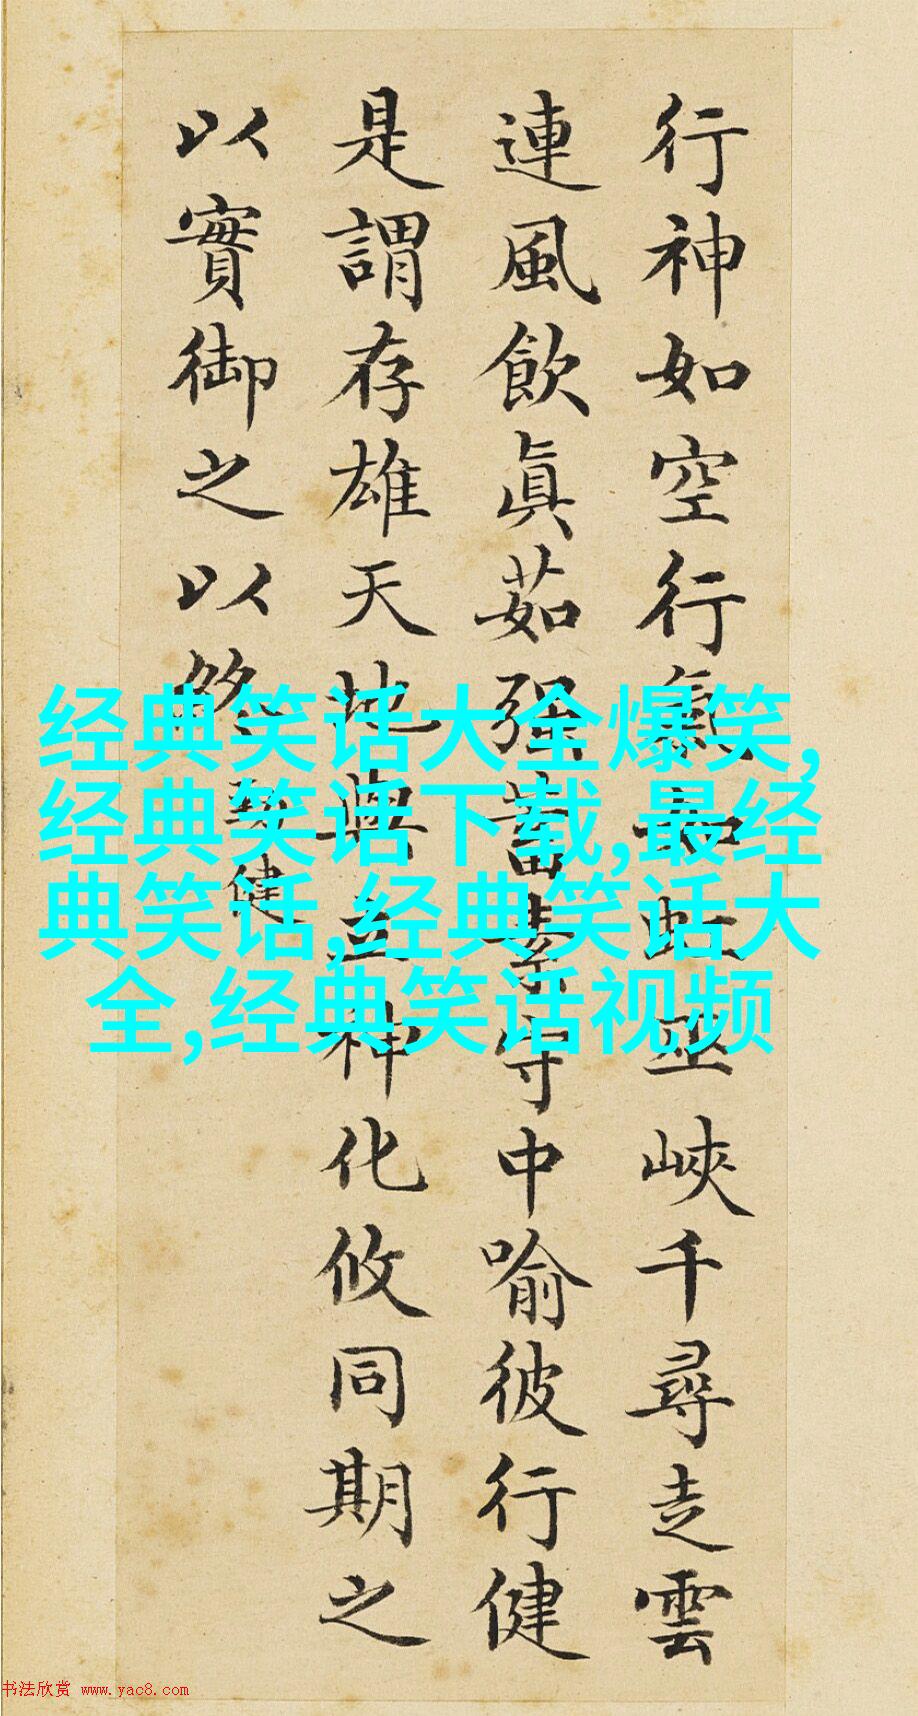 行神如空行氣如虹巫峽千尋走雲
連風飲眞茹强蓄素守中喻彼行健
是謂存雄天地與立神化攸同期之
以實御之以終
勁健
经典笑话大全爆笑,
经典笑话下载,最经
典笑话,经典笑话大
全,经典笑话视频
书法欣赏 www.yac8.com